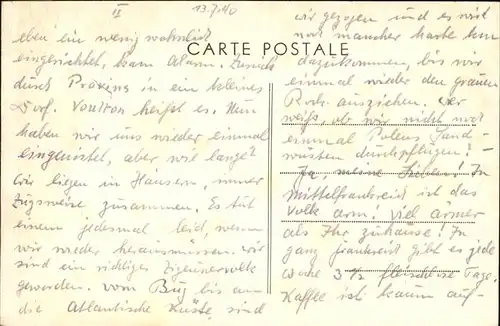 II
13.7.40
CARTE POSTALE
eben ein wenig wohnlich
eingerichtet, kam Alarm. Zurück
durch Provins in ein kleines
Dorf. Voulton heißt es. Nun
haben wir uns wieder einmal
eingenistet, aber wie lange?
Wir liegen in Häusern, immer
Zugsweise zusammen. Es tut
einem jedesmal leid, wenn
wir wieder herausmüssen. Wir
sind ein richtiges Zigeunervolk
geworden. Vom Bug bis an
die Atlantische Küste sind
wir gezogen und es wird
noch mancher harte km
dazukommen, bis wir
einmal wieder den grauen
Rock ausziehen. Wer
weiß, ob wir nicht noch
einmal Polens Sand-
wüsten durchpflügen? –
Ja, meine Lieben! In
Mittelfrankreich ist das
Volk arm. Viel ärmer
als Ihr zuhause! In
ganz Frankreich gibt es jede
Woche 3 1/2 fleischlose Tage.
Kaffee ist kaum auf-